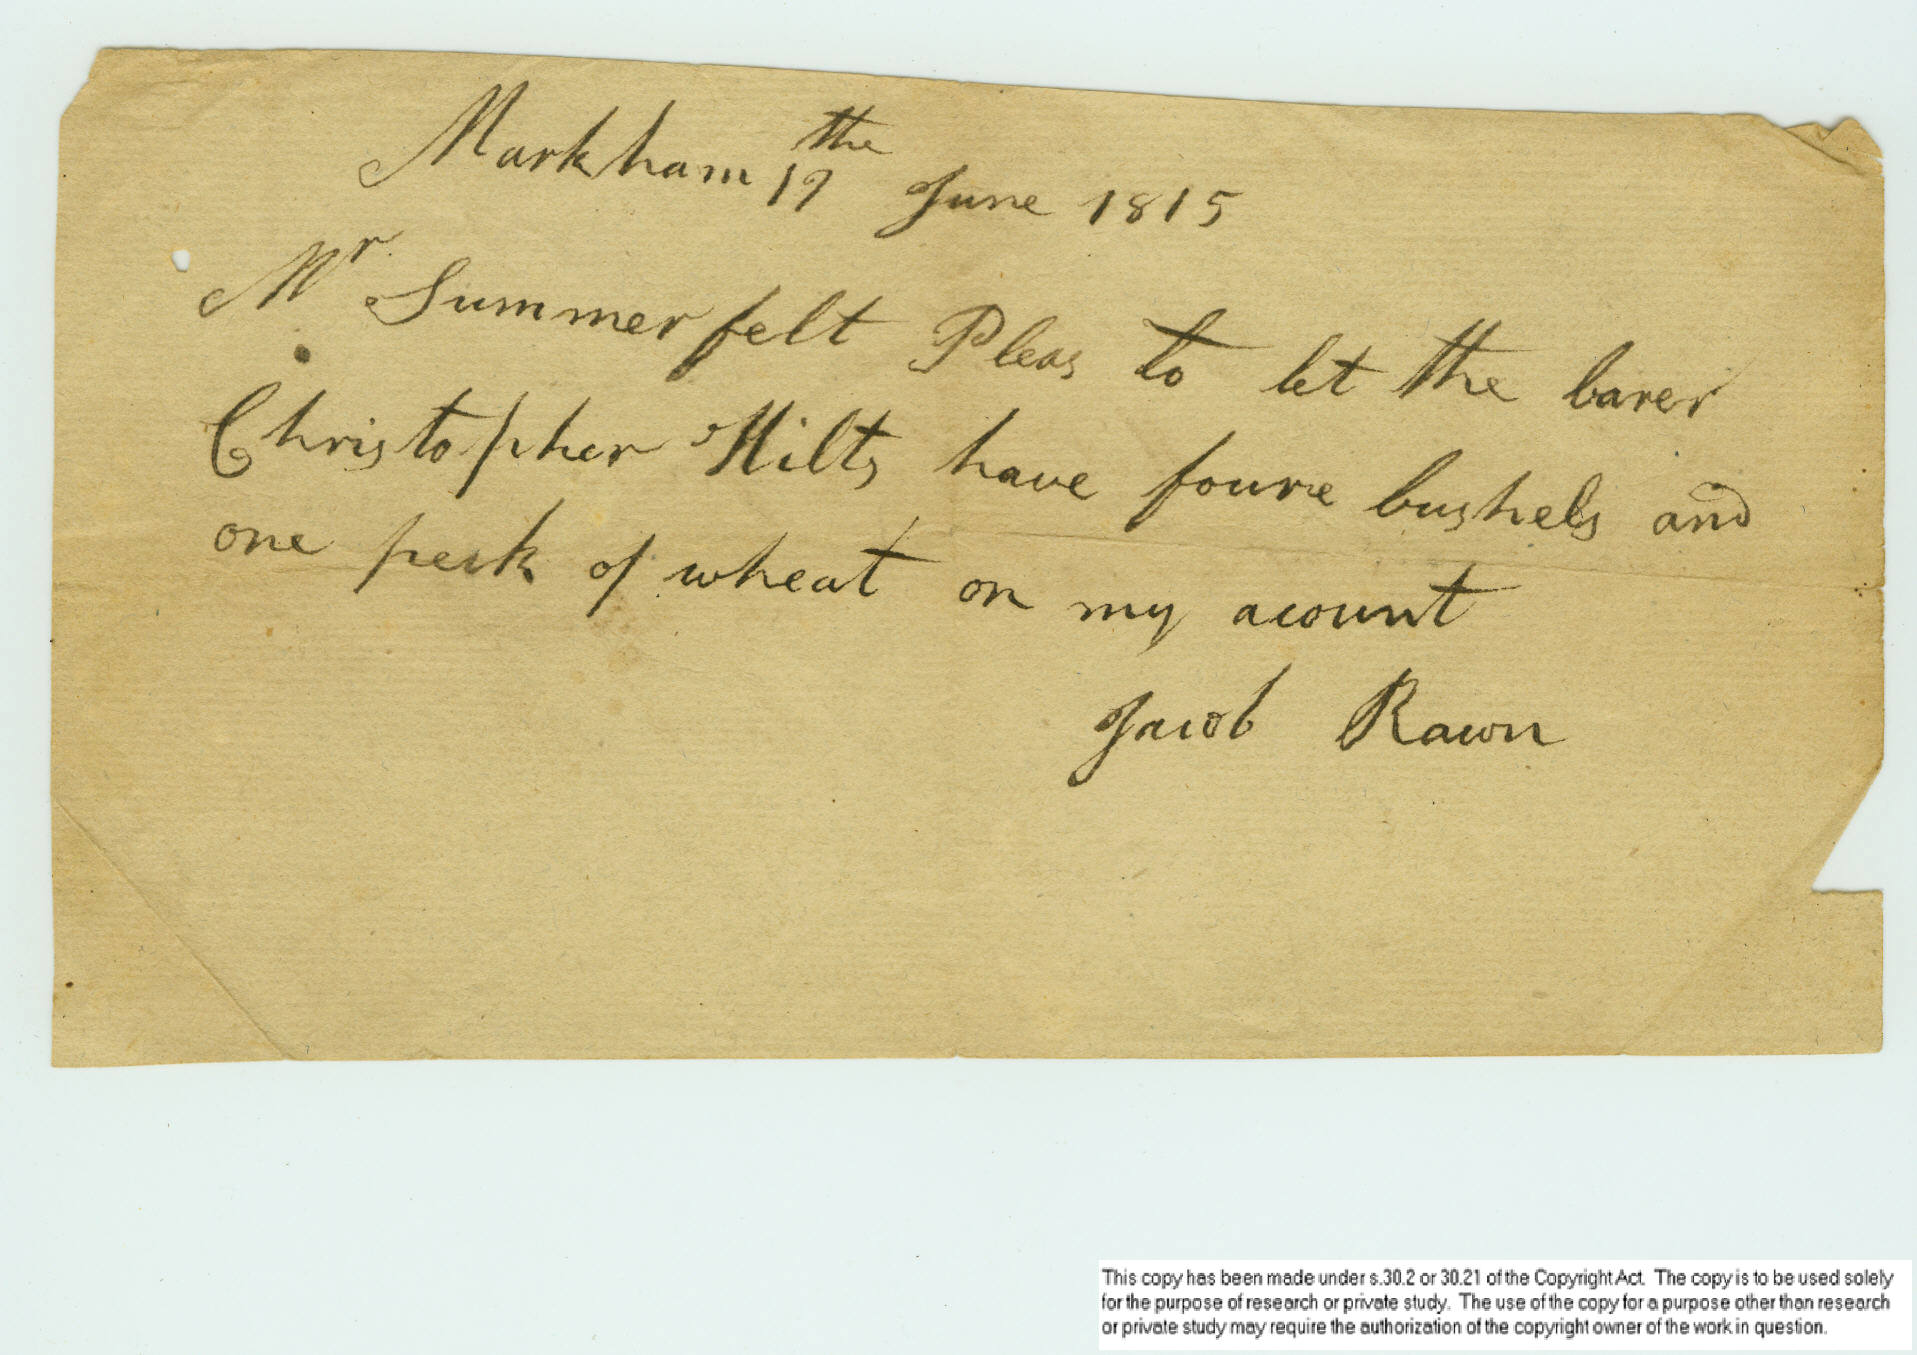 Markham 19 the June 1815
Mr Summerfelt Pleas to let the barer
Christopher Hilts have foure bushels and
one peck of wheat on my acount
Jacob Rawn
This copy has been made under s.30.2 or 30.21 of the Copyright Act. The copy is to be used solely
for the purpose of research or private study. The use of the copy for a purpose other than research
or private study may require the authorization of the copyright owner of the work in question.